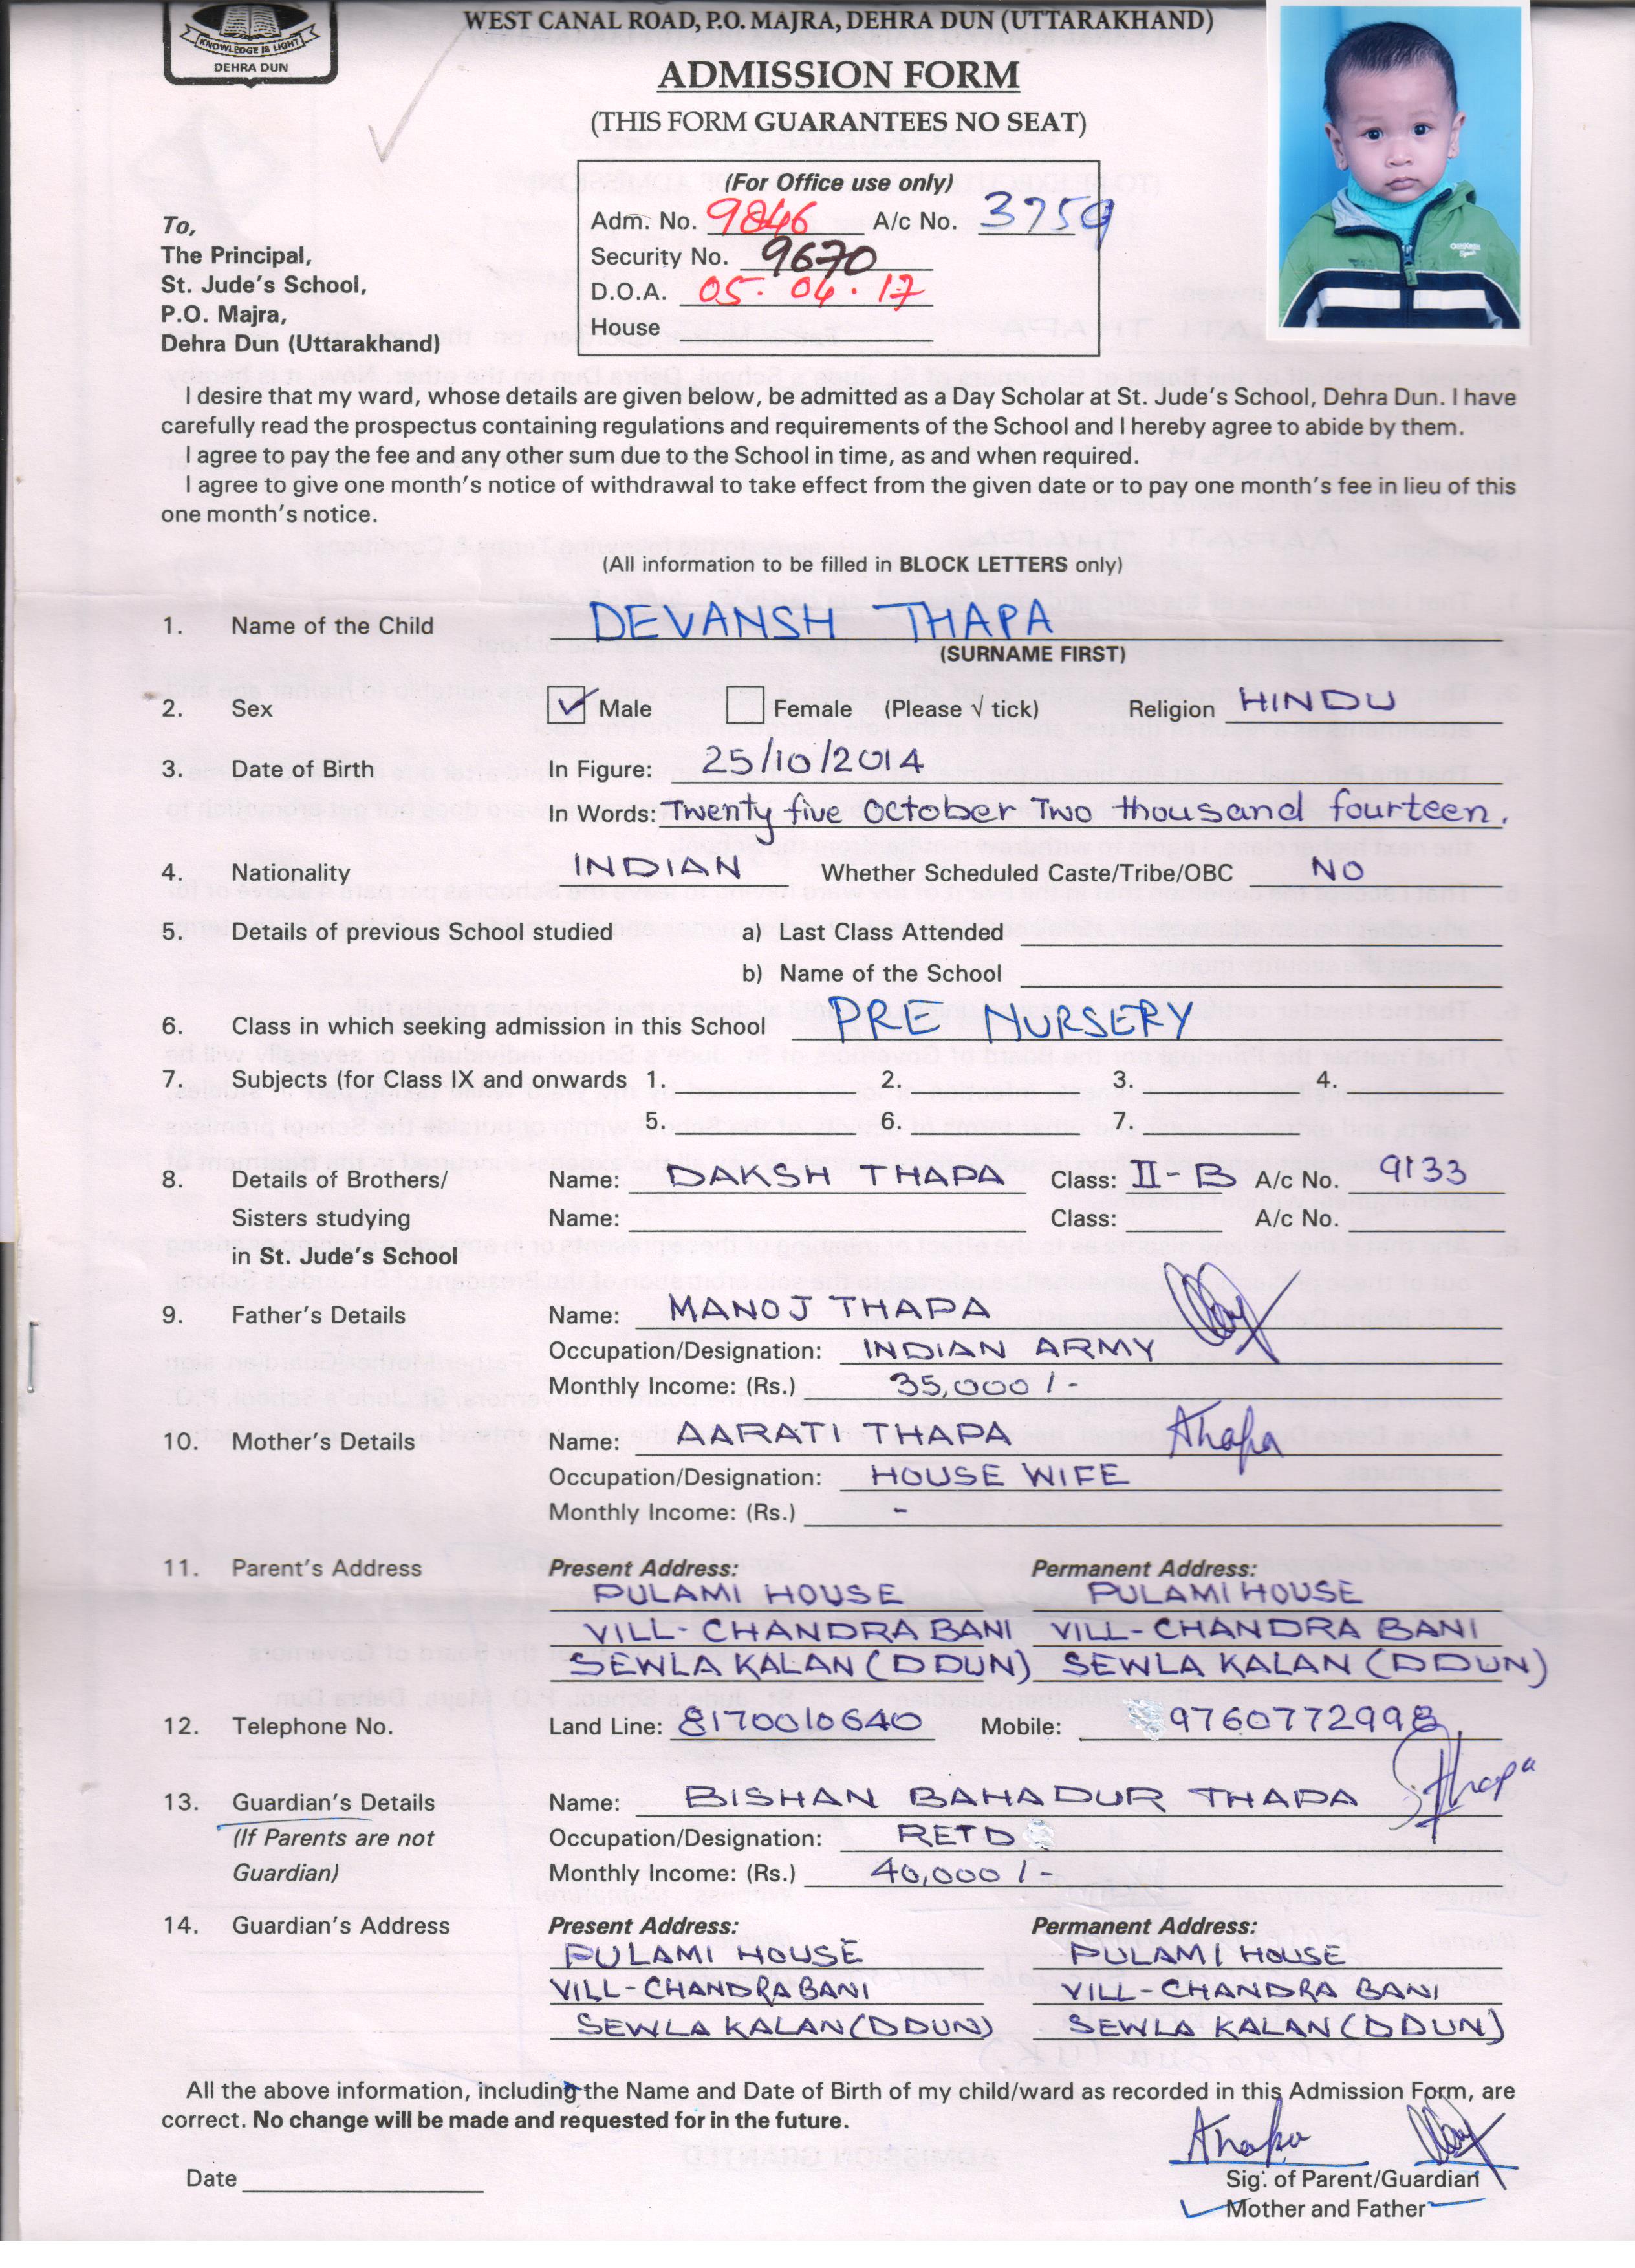 KNOWLEDGE IS LIGHT
DEHRA DUN
WEST CANAL ROAD, P.O. MAJRA, DEHRA DUN (UTTARAKHAND)
ADMISSION FORM
(THIS FORM GUARANTEES NO SEAT)
(For Office use only)
Adm. No. 9846 A/c No. 3759
Security No. 9670
D.O.A. 05.04.17
House
To,
The Principal,
St. Jude's School,
P.O. Majra,
Dehra Dun (Uttarakhand)
I desire that my ward, whose details are given below, be admitted as a Day Scholar at St. Jude's School, Dehra Dun. I have
carefully read the prospectus containing regulations and requirements of the School and I hereby agree to abide by them.
I agree to pay the fee and any other sum due to the School in time, as and when required.
I agree to give one month's notice of withdrawal to take effect from the given date or to pay one month's fee in lieu of this
one month's notice.
(All information to be filled in BLOCK LETTERS only)
1. Name of the Child DEVANSH THAPA
(SURNAME FIRST)
2. Sex Male Female (Please √ tick) Religion HINDU
3. Date of Birth In Figure: 25/10/2014
In Words: Twenty five October Two thousand fourteen.
4. Nationality INDIAN Whether Scheduled Caste/Tribe/OBC NO
5. Details of previous School studied a) Last Class Attended
b) Name of the School
6. Class in which seeking admission in this School PRE NURSERY
7. Subjects (for Class IX and onwards 1. 2. 3. 4.
5. 6. 7.
8. Details of Brothers/ Name: DAKSH THAPA Class: II-B A/c No. 9133
Sisters studying Name: Class: A/c No.
in St. Jude's School
9. Father's Details Name: MANOJ THAPA
Occupation/Designation: INDIAN ARMY
Monthly Income: (Rs.) 35,000/-
10. Mother's Details Name: AARATI THAPA Athapa
Occupation/Designation: HOUSE WIFE
Monthly Income: (Rs.) -
11. Parent's Address Present Address: Permanent Address:
PULAMI HOUSE PULAMI HOUSE
VILL-CHANDRA BANI VILL-CHANDRA BANI
SEWLA KALAN (DDUN) SEWLA KALAN (DDUN)
12. Telephone No. Land Line: 8170010640 Mobile: 9760772998
13. Guardian's Details Name: BISHAN BAHADUR THAPA
(If Parents are not Occupation/Designation: RETD
Guardian) Monthly Income: (Rs.) 40,000/-
14. Guardian's Address Present Address: Permanent Address:
PULAMI HOUSE PULAMI HOUSE
VILL-CHANDRABANI VILL-CHANDRA BANI
SEWLA KALAN (DDUN) SEWLA KALAN (DDUN)
All the above information, including the Name and Date of Birth of my child/ward as recorded in this Admission Form, are
correct. No change will be made and requested for in the future.
Date
Sig. of Parent/Guardian
Mother and Father